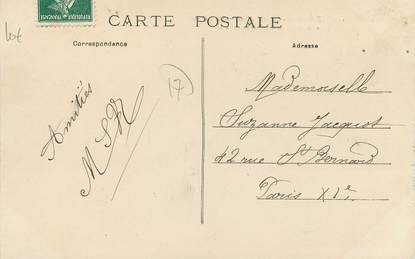 lot
CARTE POSTALE
Correspondance
Adresse
17
Amitiés
MSR
Mademoiselle
Suzanne Jacquot
42 rue St Bernard
Paris XIe